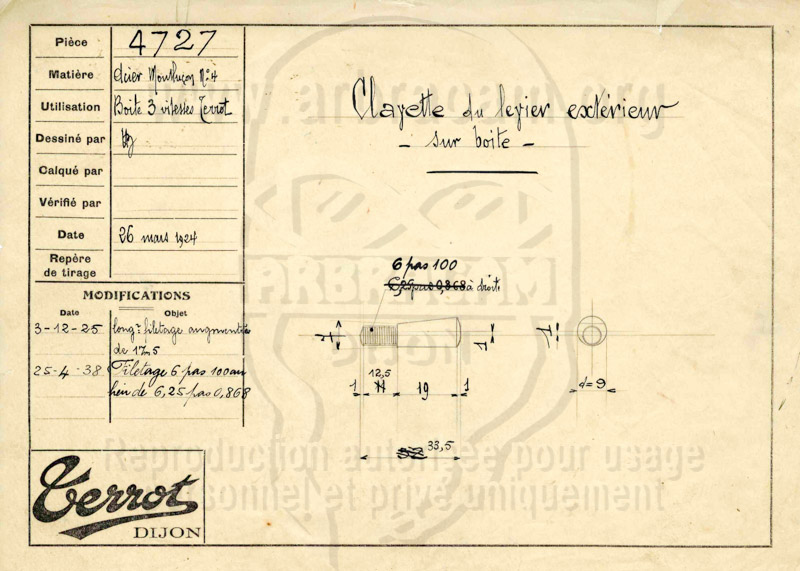 Pièce 4727
Matière Acier Montluçon No 4
Utilisation Boite 3 vitesses Terrot
Dessiné par
Calqué par
Vérifié par
Date 26 mars 1924
Repère
de tirage
MODIFICATIONS
Date Objet
3-12-25 longr filetage augmentée
de 1m5
25-4-38 Filetage 6 pas 100 au
lieu de 6,25 pas 0,868
Terrot
DIJON
Clavette du levier extérieur
- sur boite -
6 pas 100
6,25 pas 0,868 à droite
12,5
1 11 19 1
32 33,5
d=9
www.arbracam.org
ARBRACAM
DIJON
Reproduction autorisée pour usage
personnel et privé uniquement